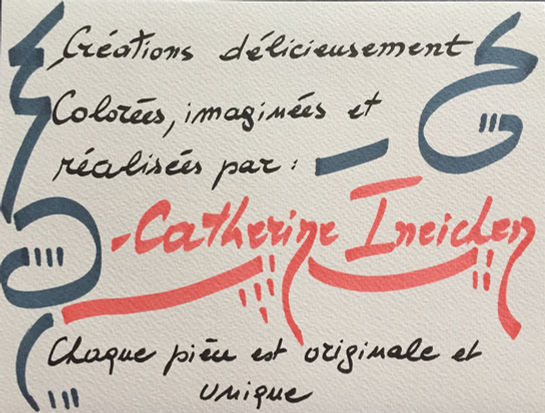 Créations délicieusement
Colorées, imaginées et
réalisées par :
-Catherine Ineichen
Chaque pièce est originale et
unique